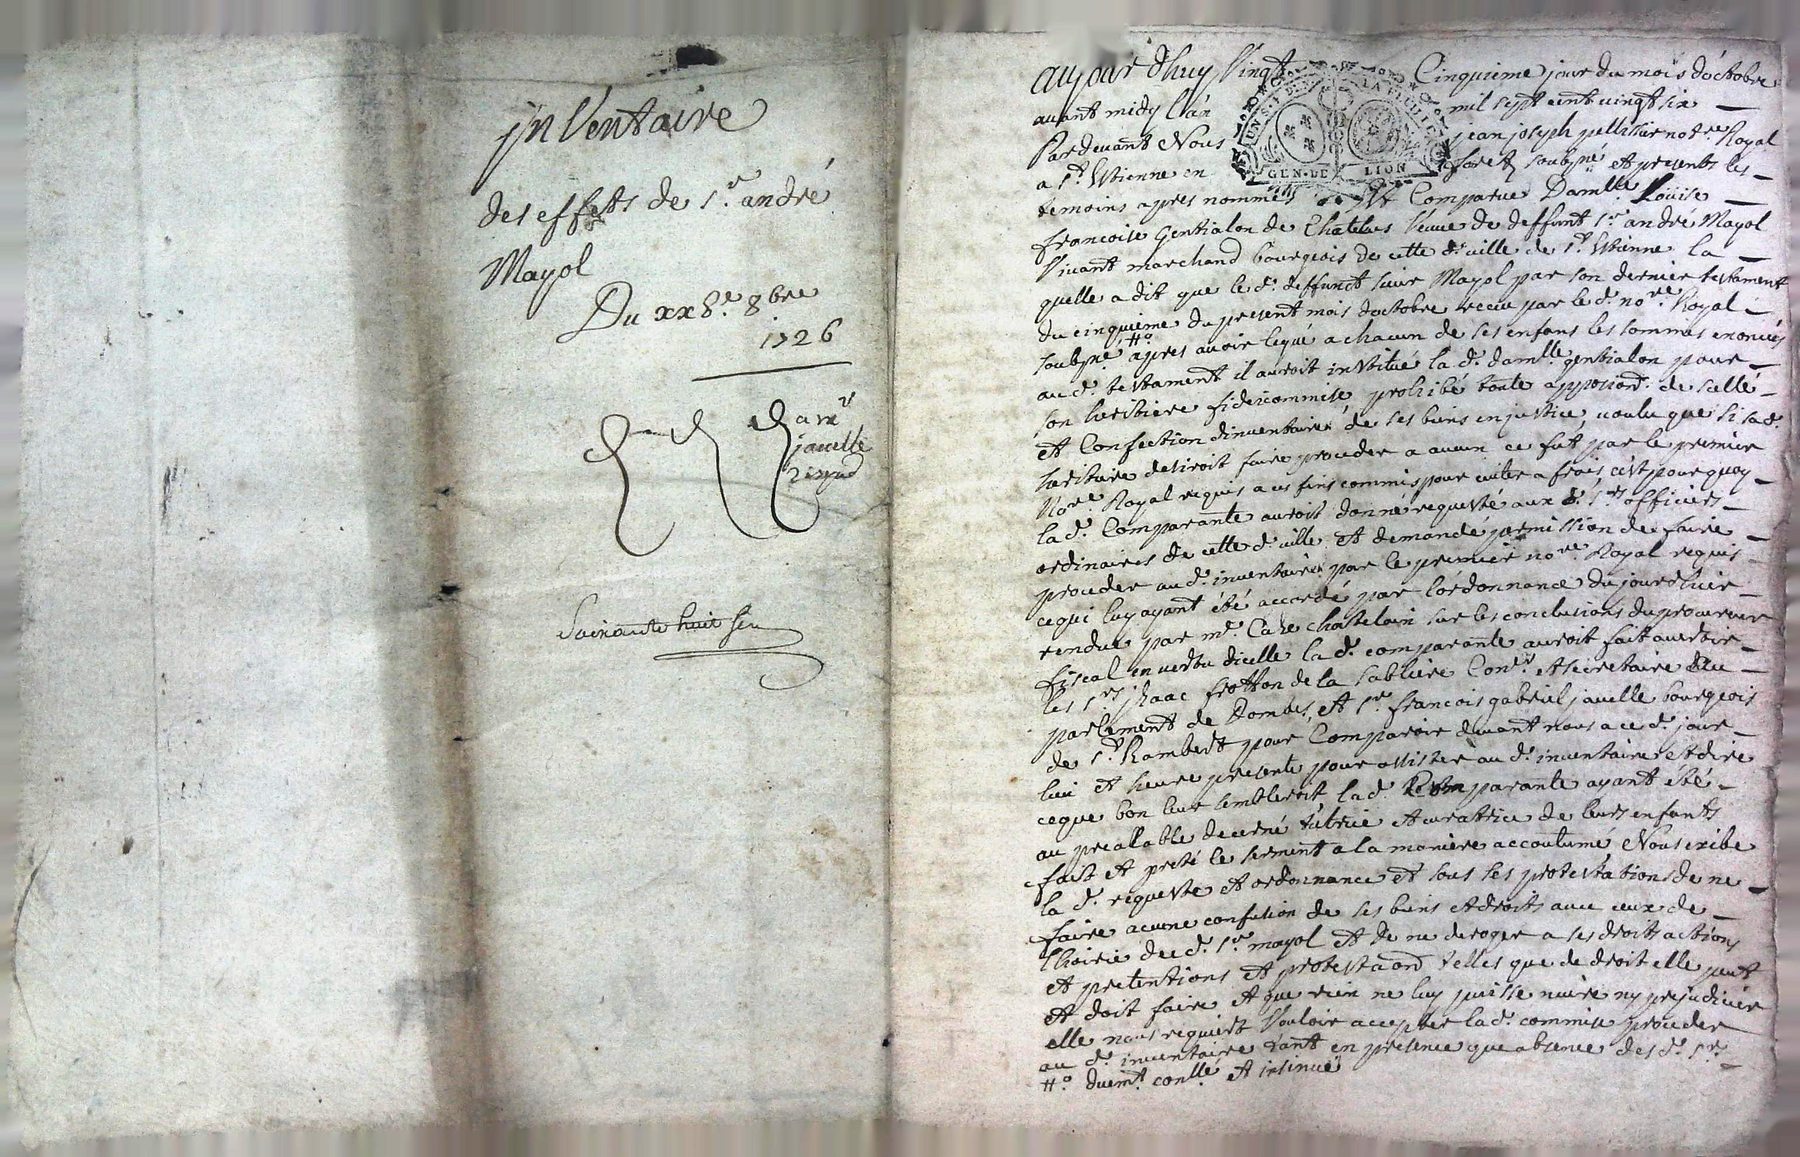 jnventaire
des effets de s.r andré
Mayol
Du xx5.e 8bre
1726
a m.r
javelle
Soixante huit feu
aujourdhuy Vingt Cinquieme jour du mois doctobre
avant midy l'an mil sept cent vingt six
Pardevant Nous jean joseph pellissier not.re Royal
a s.t Estienne en forez soubzné et presents les
temoins apres nommés est Comparue Dam.lle Loüise
francoise genthialon de Chatelus veuve de deffunt s.r andré Mayol
Vivant marchand bourgeois de cette d. ville de s.t Estienne la
quelle a dit que le d. deffunct sieur Mayol par son dernier testament
du cinquieme du present mois doctobre receu par le d. no.re Royal
soubzné, #o apres avoir legué a chacun de ses enfans les sommes enoncées
au d. testament il auroit institué la d. dam.lle genthialon pour
son heritiere fideicommise prohibé toute apposion. de scellé
et Confection dinventaire de ses biens en justice, voulu que si sa d.
heritiere desiroit faire proceder a aucun ce fut par le premier
No.re Royal requis a ces fins commis pour eviter a frais, c'est pourquoy
la d. Comparante auroit donné requeste aux s.rs officiers
ordinaires de cette d. ville et demandé permission de faire
proceder au d. inventaire par le premier no.re Royal requis
cequi luy ayant été accordé par lordonnance du jourdhier
rendue par m.e Caze chastelain sur les conclusions du procureur
fiscal en vertu dicelle la d. comparante auroit fait avertir
les s.rs jzaac frotton de la sabliere Con.er et secretaire au
parlement de Dombes, et s.r francois gabriel javelle bourgeois
de s.t Rambert pour Comparoir devant nous a ce d. jour
lieu et heure presente pour assister au d. inventaire et dire
ceque bon leur sembleroit la d. Comparante ayant été
au prealable decerné tutrice et curatrice de leurs enfants
fait et preté le serment a la maniere accoutumé Nous exibe
la d. requeste et ordonnance et sous les protestations de ne
faire aucune confusion de ses biens et droits avec ceux de
lhoirie du d. s.r mayol et de ne deroger a ses droits actions
et pretentions et protestaon telles que de droit elle peut
et doit faire et que rien ne luy puisse nuire ny prejudicier
elle nous requiert vouloir accepter la d. commise proceder
au d. inventaire tant en presence que absence des d. s.rs
#o duem.t conllé et insinué
UNSI DEN
GEN. DE LION